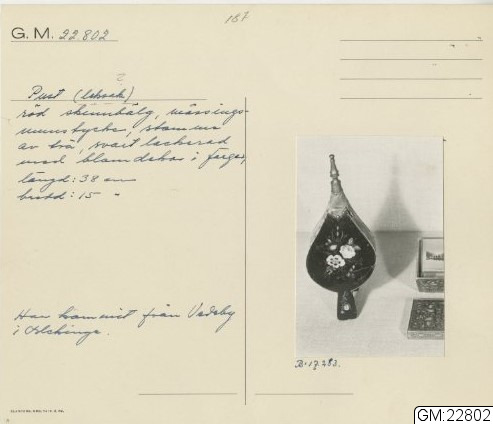 187
G. M. 22.802
Pust (leksak)
röd skinnbälg, mässings-
munstycke, stomme
av trä, svart lackerad
med blomdekor i färger,
längd: 38 cm
bredd: 15 "
Har kommit från
i Blekinge.
B. 17.283.
GM:22802